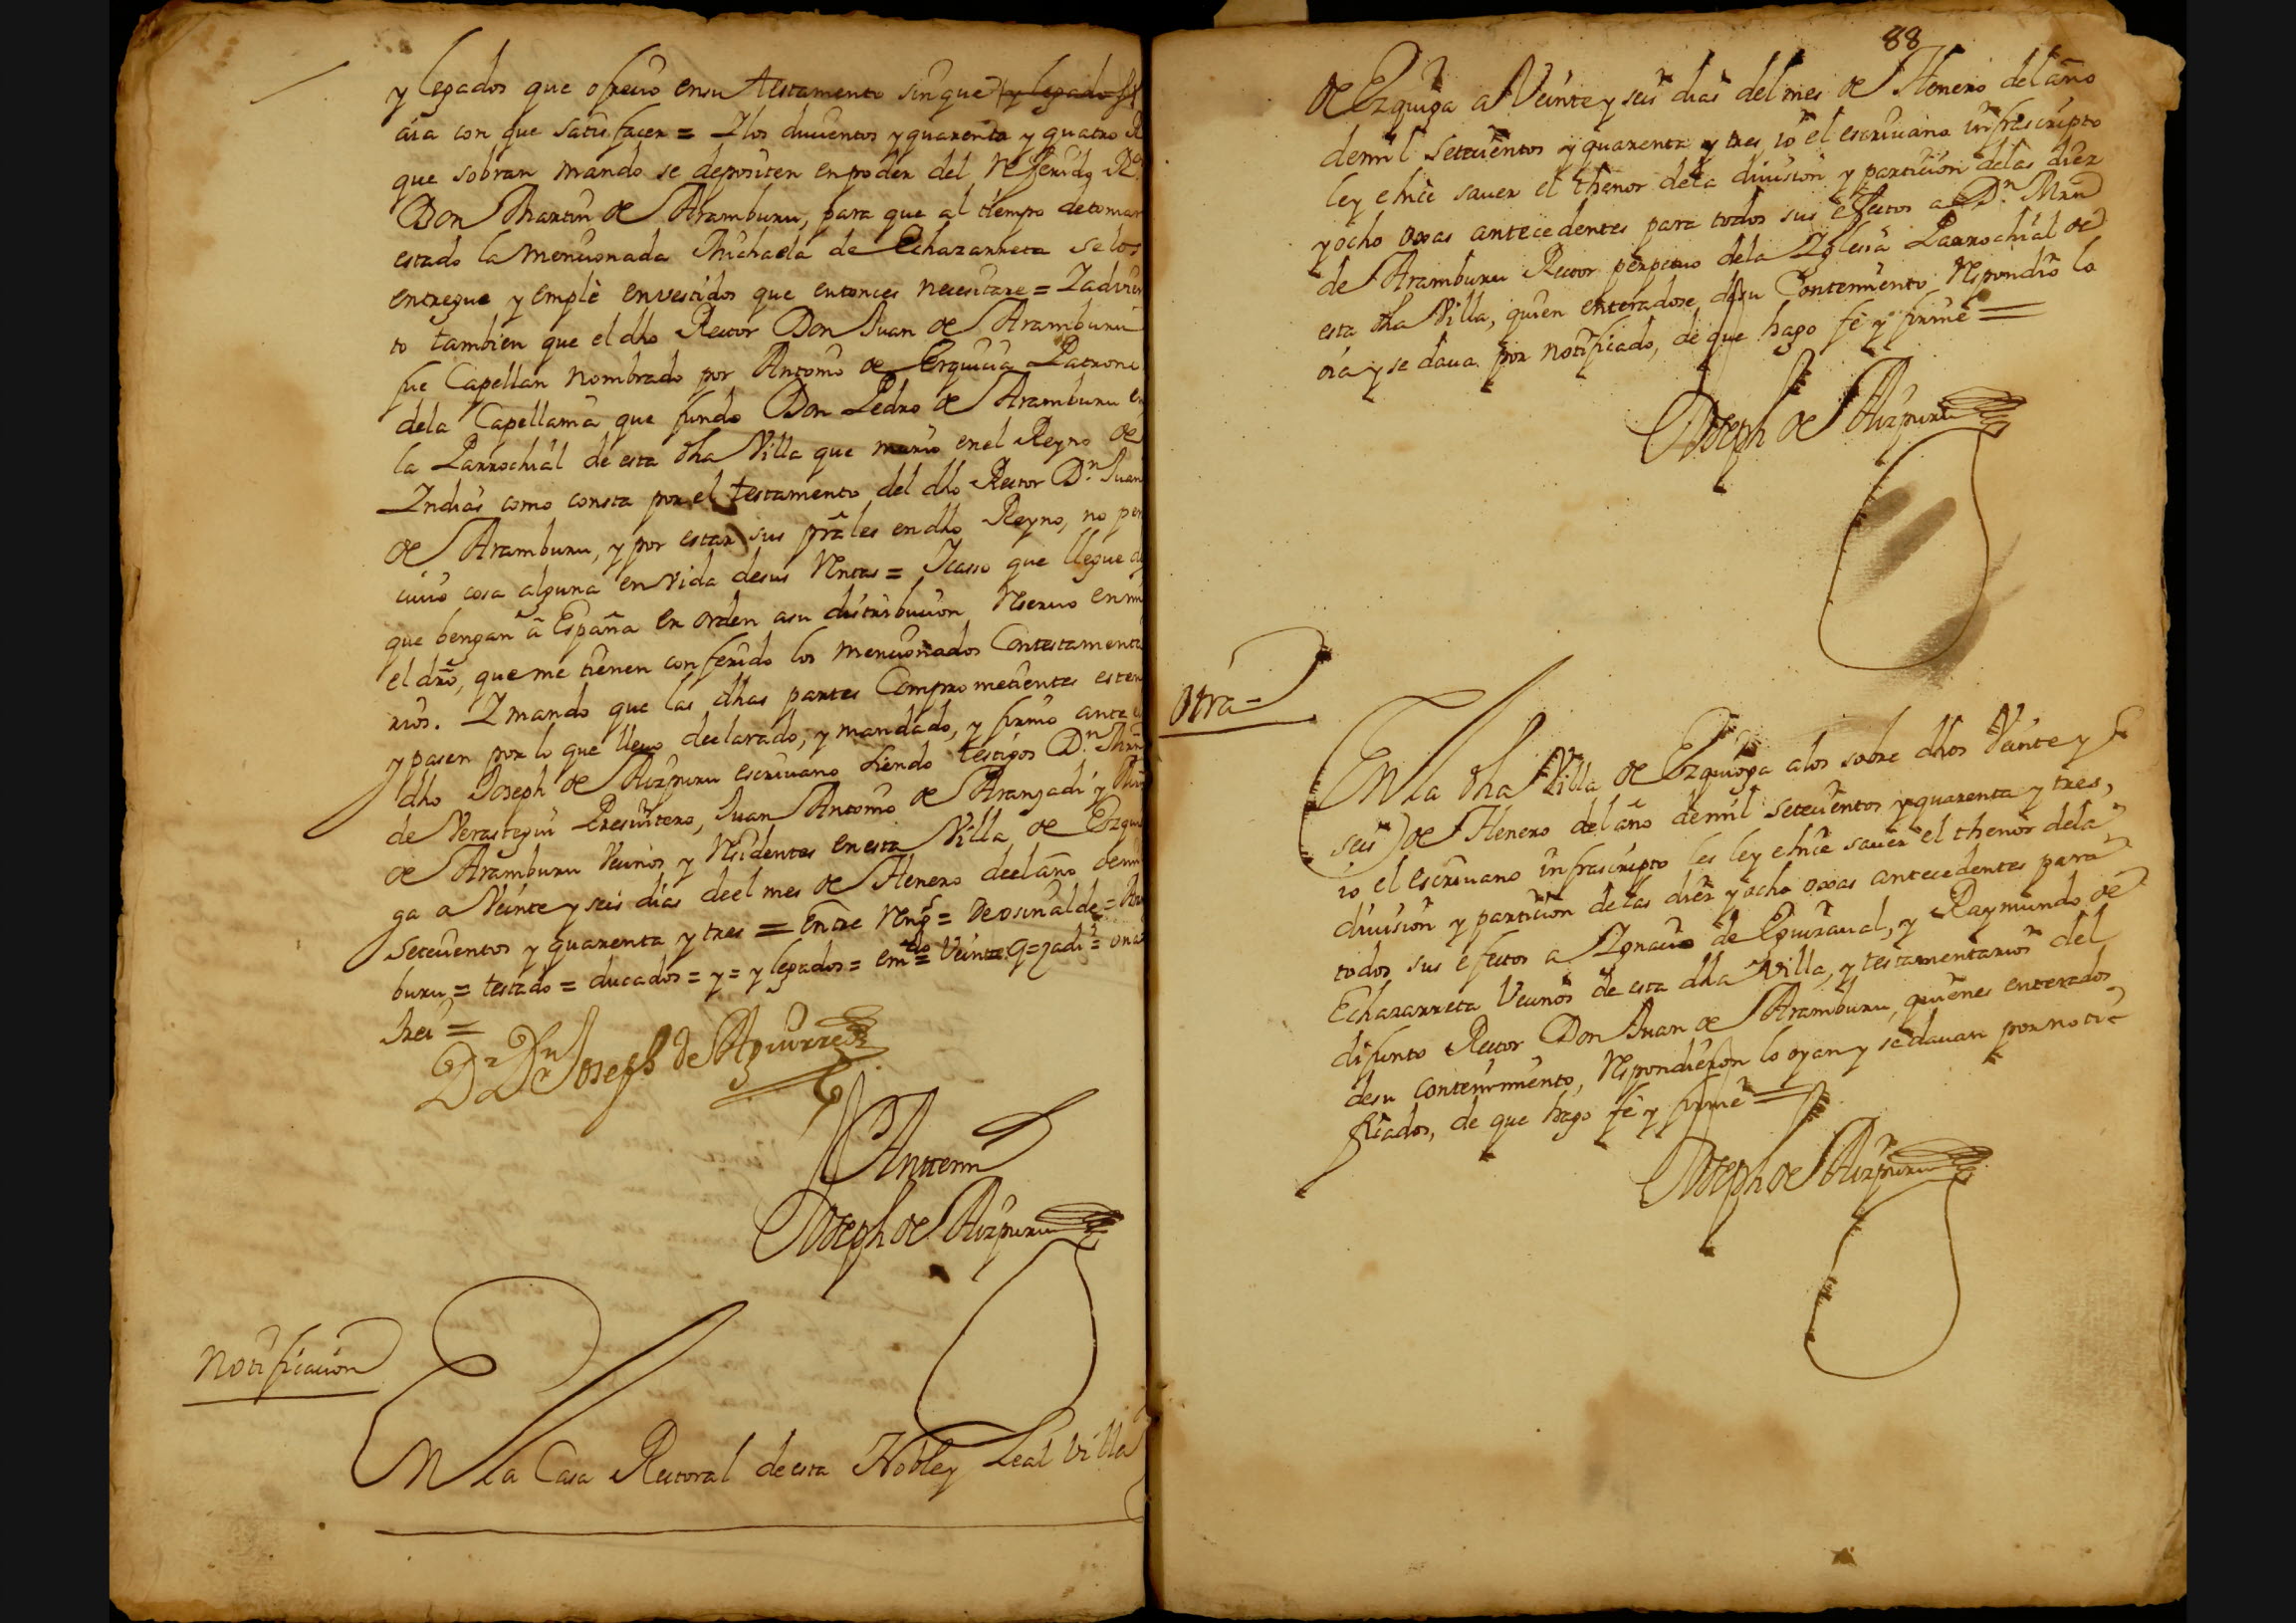 y legados que ofreció en su testamento sin que y legados
aia con que satisfacer = Y los ducientos y quarenta y quatro R
que sobran mando se depositen en poder del referido Rr
Don Martin de Aramburu, para que al tiempo de tomar
estado la mencionada Michaela de Echazarreta se los
entregue y emplè en vestidos que entonces necesitare = Y advier
to tambien que el dho Rector Don Juan de Aramburu
fue Capellan nombrado por Antonio de Erquicia Patrono
de la Capellania que fundo Don Pedro de Aramburu en
la Parrochial de esta dha Villa que murio en el Reyno de
Indias como consta por el testamento del dho Rector Dn. Juan
de Aramburu, y por estar sus prãles en dho Reyno, no per
civio cosa alguna en vida de sus rentas = Y caso que llegue a
que bengan à España en orden a su distribucion reservo en mi
el drõ, que me tienen conferido los mencionados Contestamenta
rios. Y mando que las dhas partes Comprometientes esten
y pasen por lo que llevo declarado, y mandado, y firmo ante el
dho Joseph de Aizpuru escrivano siendo testigos Dn. Mrñ
de Verastegui Presvitero, Juan Antonio de Aranzadi y
de Aramburu Vecinos y residentes en esta Villa de Ezquio
ga a Veinte y seis dias deel mes de Henero deel año de mil
setecientos y quarenta y tres = Entre reng.s = de osinalde =
buru = testado = ducados = y = y legados = emdo = Veinte =

Dr Dn Joseph de Aguirre
Antemi
Joseph de Aizpuru
Notificacion
En la Casa Rectoral de esta Noble y Leal Villa
88
de Ezquioga a Veinte y seis dias del mes de Henero del año
de mil setecientos y quarenta y tres, io el escrivano infrascripto
ley e hice saver el thenor de la division y particion de las diez
y ocho oxas antecedentes para todos sus efectos a Dn. Mrñ
de Aramburu Rector perpetuo de la Iglesia Parrochial de
esta dha Villa, quien enteradose de su Contenimiento respondiò lo
oia y se dava por notificado, de que hago fè y firmè =
Joseph de Aizpuru
Otra =
En la dha Villa de Ezquioga a los sobre dhos Veinte y
seis de Henero del año de mil setecientos y quarenta y tres,
io el escrivano infrascripto les ley e hice saver el thenor de la
division y particion de las diez y ocho oxas antecedentes para
todos sus efectos a Ignacio de Eguizaval, y Raymundo de
Echazarreta Vecinos de esta dha Villa, y testamentarios del
difunto Rector Don Juan de Aramburu, quienes enterados
de su contenimiento, respondieron lo oyan y se davan por noti-
ficados, de que hago fè y firmè =
Joseph de Aizpuru